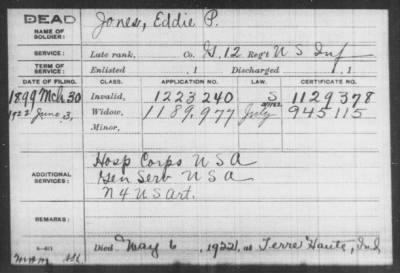 DEAD
NAME OF SOLDIER: Jones, Eddie P.
SERVICE: Late rank, Co. G, 12 Reg't U S Inf
TERM OF SERVICE: Enlisted , 1 , Discharged , 1 .
DATE OF FILING. CLASS. APPLICATION NO. LAW. CERTIFICATE NO.
1899 Mch 30 Invalid, 1223240 S 1129378
1922 June 3, Widow, 1189,977 July 945115
Minor,
ADDITIONAL SERVICES: Hosp Corps U S A
Gen Serv U S A
N 4 U S Art.
REMARKS:
Died May 6, 1922, at Terre Haute, Ind